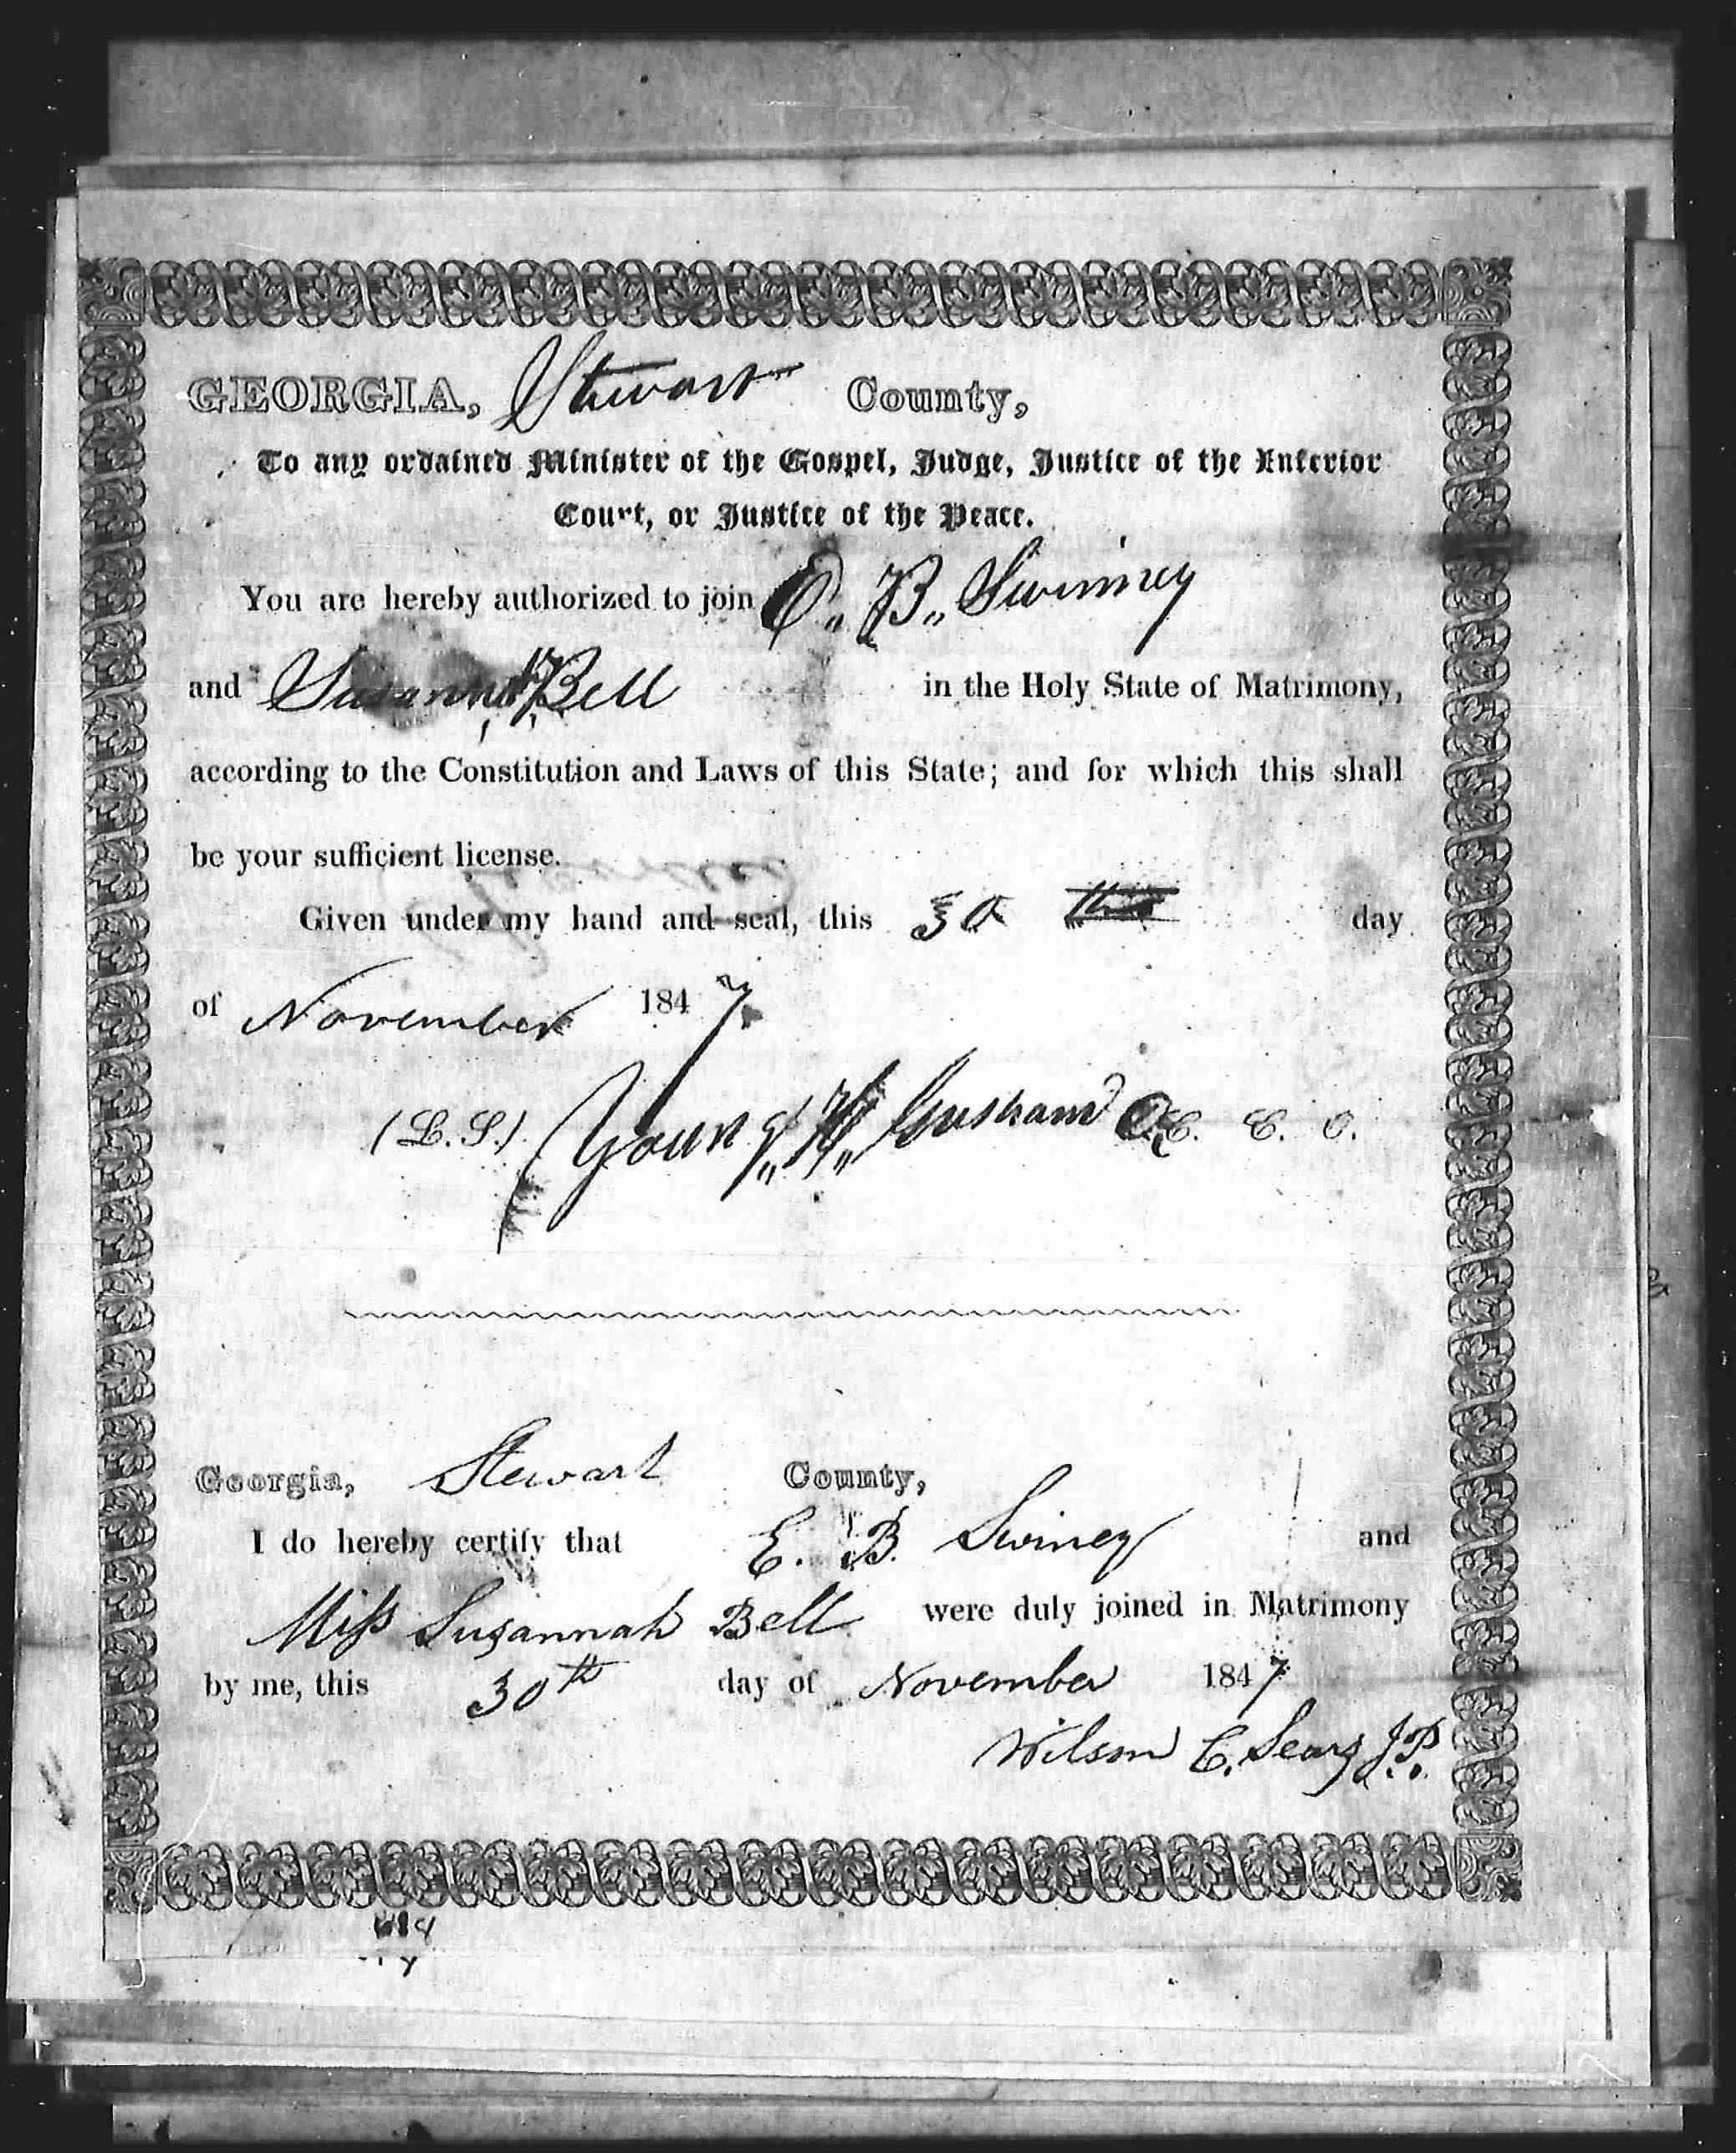 GEORGIA, Stewart County,
To any ordained Minister of the Gospel, Judge, Justice of the Inferior
Court, or Justice of the Peace.
You are hereby authorized to join E. B. Swinney
and Susannah Bell in the Holy State of Matrimony,
according to the Constitution and Laws of this State; and for which this shall
be your sufficient license.
Given under my hand and seal, this 30 th day
of November 1847
(L. S.) Young H. C. C. O.
Georgia, Stewart County,
I do hereby certify that E. B. Swiney and
Miss Susannah Bell were duly joined in Matrimony
by me, this 30th day of November 1847
Wilson C. Sears J.P.